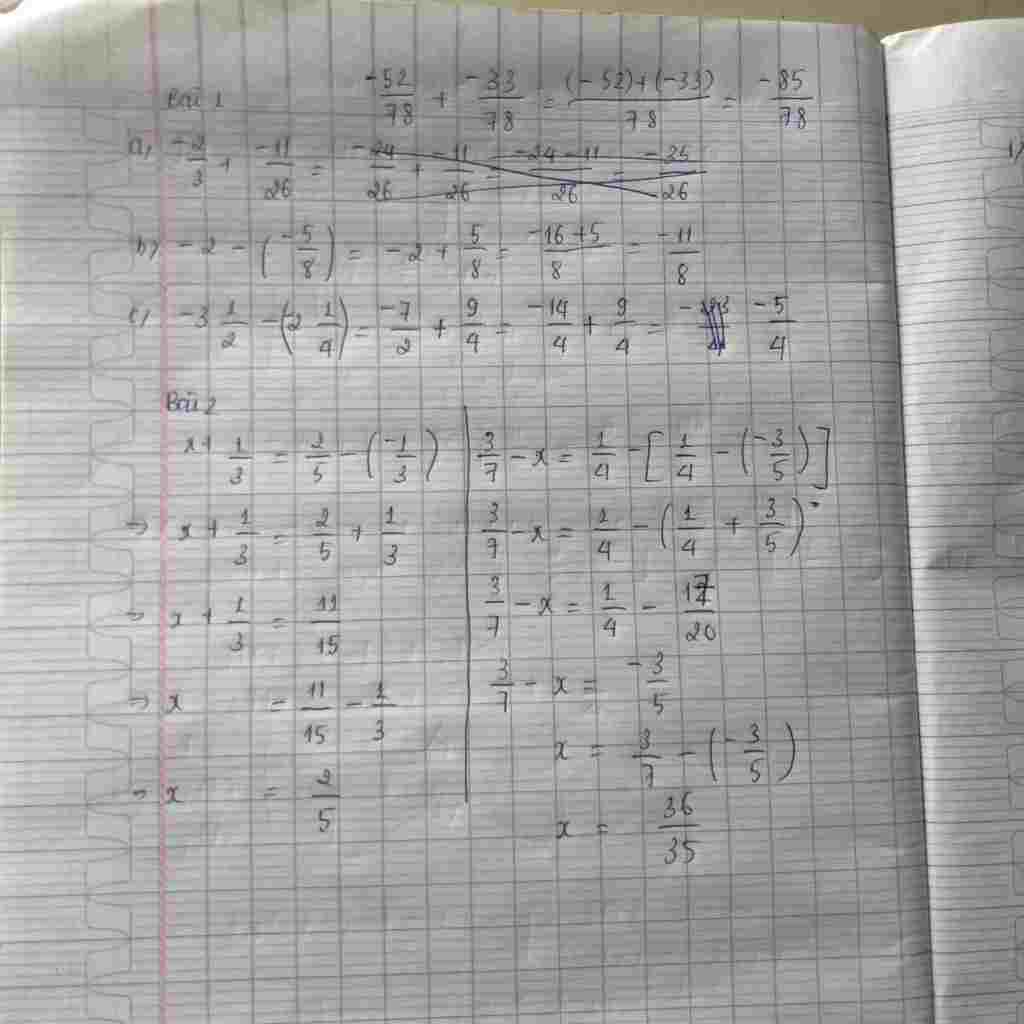 Bài 1
-52/78 + -33/78 = (-52)+(-33)/78 = -85/78
a) -2/3 + -11/26 = -24/26 + -11/26 = -24-11/26 = -35/26
b) -2 - (-5/8) = -2 + 5/8 = -16+5/8 = -11/8
c) -3 1/2 - (-2 1/4) = -7/2 + 9/4 = -14/4 + 9/4 = -5/4
Bài 2
x + 1/3 = 2/5 - (-1/3)
=> x + 1/3 = 2/5 + 1/3
=> x + 1/3 = 11/15
=> x = 11/15 - 1/3
=> x = 2/5
3/7 - x = 1/4 - [1/4 - (-3/5)]
3/7 - x = 1/4 - (1/4 + 3/5)
3/7 - x = 1/4 - 17/20
3/7 - x = -3/5
x = 3/7 - (-3/5)
x = 36/35